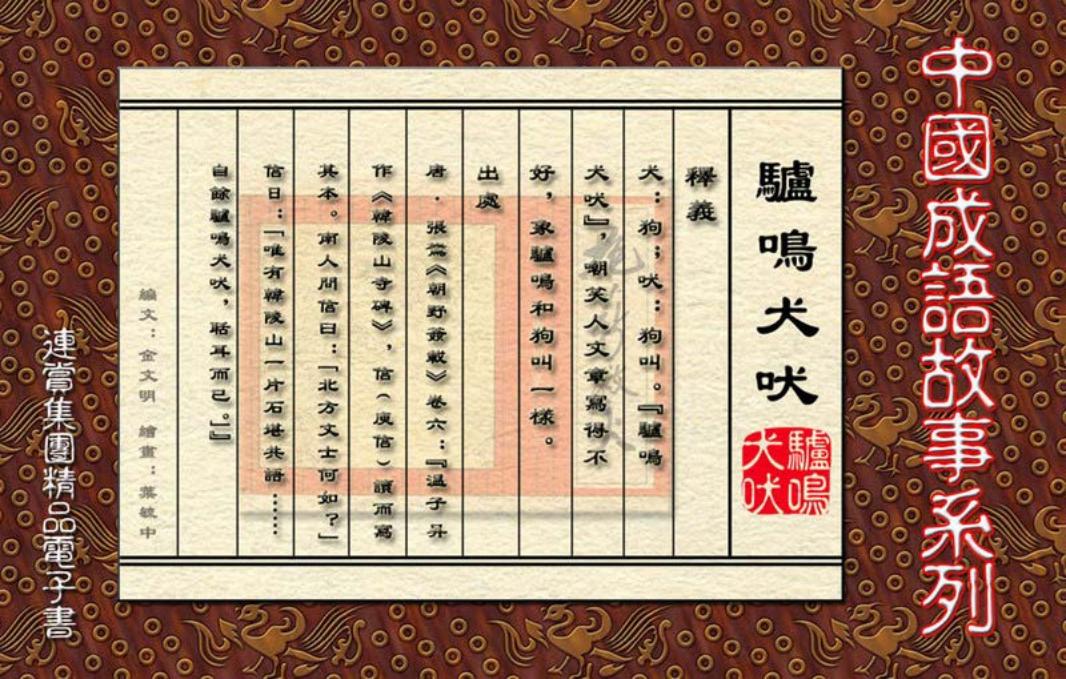 中國成語故事系列
驢鳴犬吠
驢鳴
犬吠
釋義
犬：狗；吠：狗叫。『驢鳴
犬吠』，嘲笑人文章寫得不
好，象驢鳴和狗叫一樣。
出處
唐．張鷟《朝野僉載》卷六：『溫子昇
作《韓陵山寺碑》，信（庾信）讀而寫
其本。南人問信曰：「北方文士何如？」
信曰：「唯有韓陵山一片石堪共語……
自餘驢鳴犬吠，聒耳而已。』
編文：金文明 繪畫：葉敏中
連賞集團精品電子書